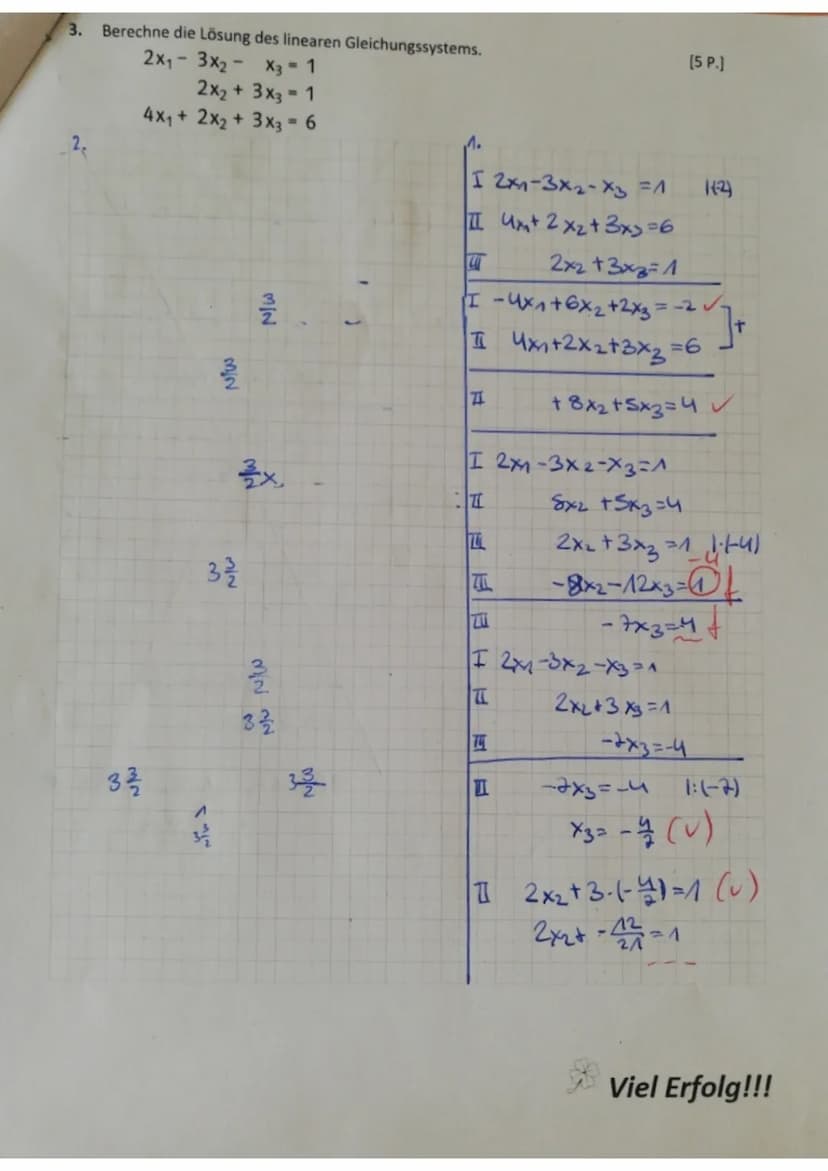 3. Berechne die Lösung des linearen Gleichungssystems.
[5 P.]
2x₁ - 3x₂ - x₃ = 1
2x₂ + 3x₃ = 1
4x₁ + 2x₂ + 3x₃ = 6
2.
3/2
3/2
3/2 x
3 3/2
3/2
3 3/2
3 3/2
3 3/2
1
3 3/2
1.
I 2x₁-3x₂-x₃ =1 |(-2)
II 4x₁+2x₂+3x₃=6
III 2x₂+3x₃=1
I -4x₁+6x₂+2x₃=-2 ✓
+
II 4x₁+2x₂+3x₃=6
II +8x₂+5x₃=4 ✓
I 2x₁-3x₂-x₃=1
II 8x₂+5x₃=4
III 2x₂+3x₃=1 |·(-4)
-4
III -8x₂-12x₃=1 f
III -7x₃=4 f
I 2x₁-3x₂-x₃=1
II 2x₂+3x₃=1
III -7x₃=-4
III -7x₃=-4 |:(-7)
x₃=-4/7 (✓)
II 2x₂+3·(-4/7)=1 (✓)
2x₂+-12/21=1
Viel Erfolg!!!